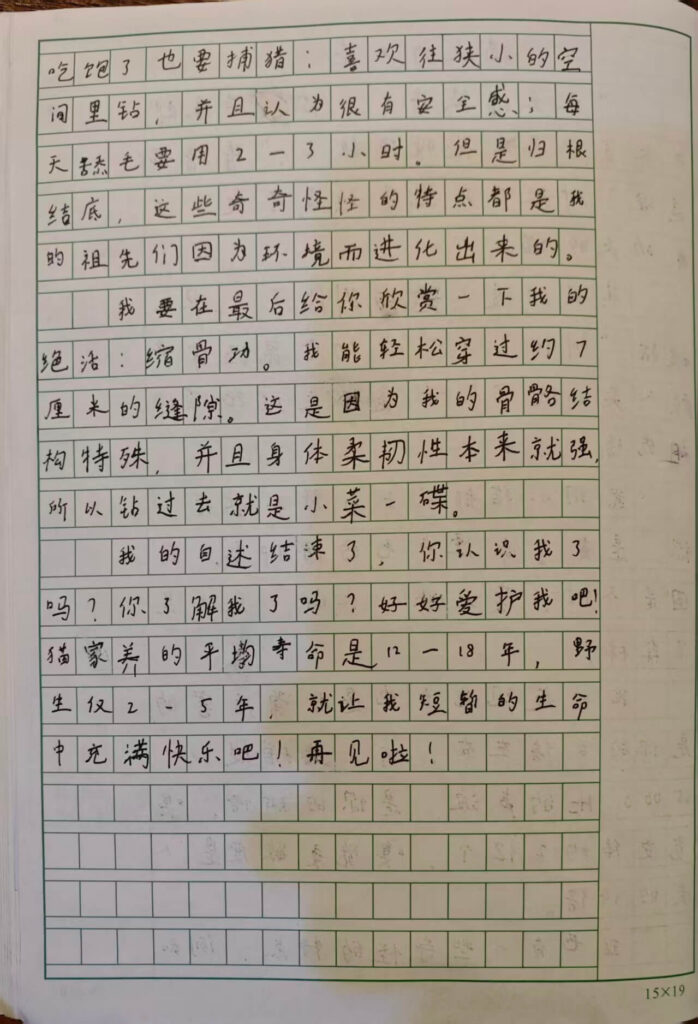 吃饱了也要捕猎；喜欢往狭小的空
间里钻，并且认为很有安全感；每
天舔毛要用2一3小时。但是归根
结底，这些奇奇怪怪的特点都是我
的祖先们因为环境而进化出来的。
我要在最后给你欣赏一下我的
绝活：缩骨功。我能轻松穿过约7
厘米的缝隙。这是因为我的骨骼结
构特殊，并且身体柔韧性本来就强，
所以钻过去就是小菜一碟。
我的自述结束了，你认识我了
吗？你了解我了吗？好好爱护我吧！
猫家养的平均寿命是12一18年，野
生仅2-5年，就让我短暂的生命
中充满快乐吧！再见啦！
15×19